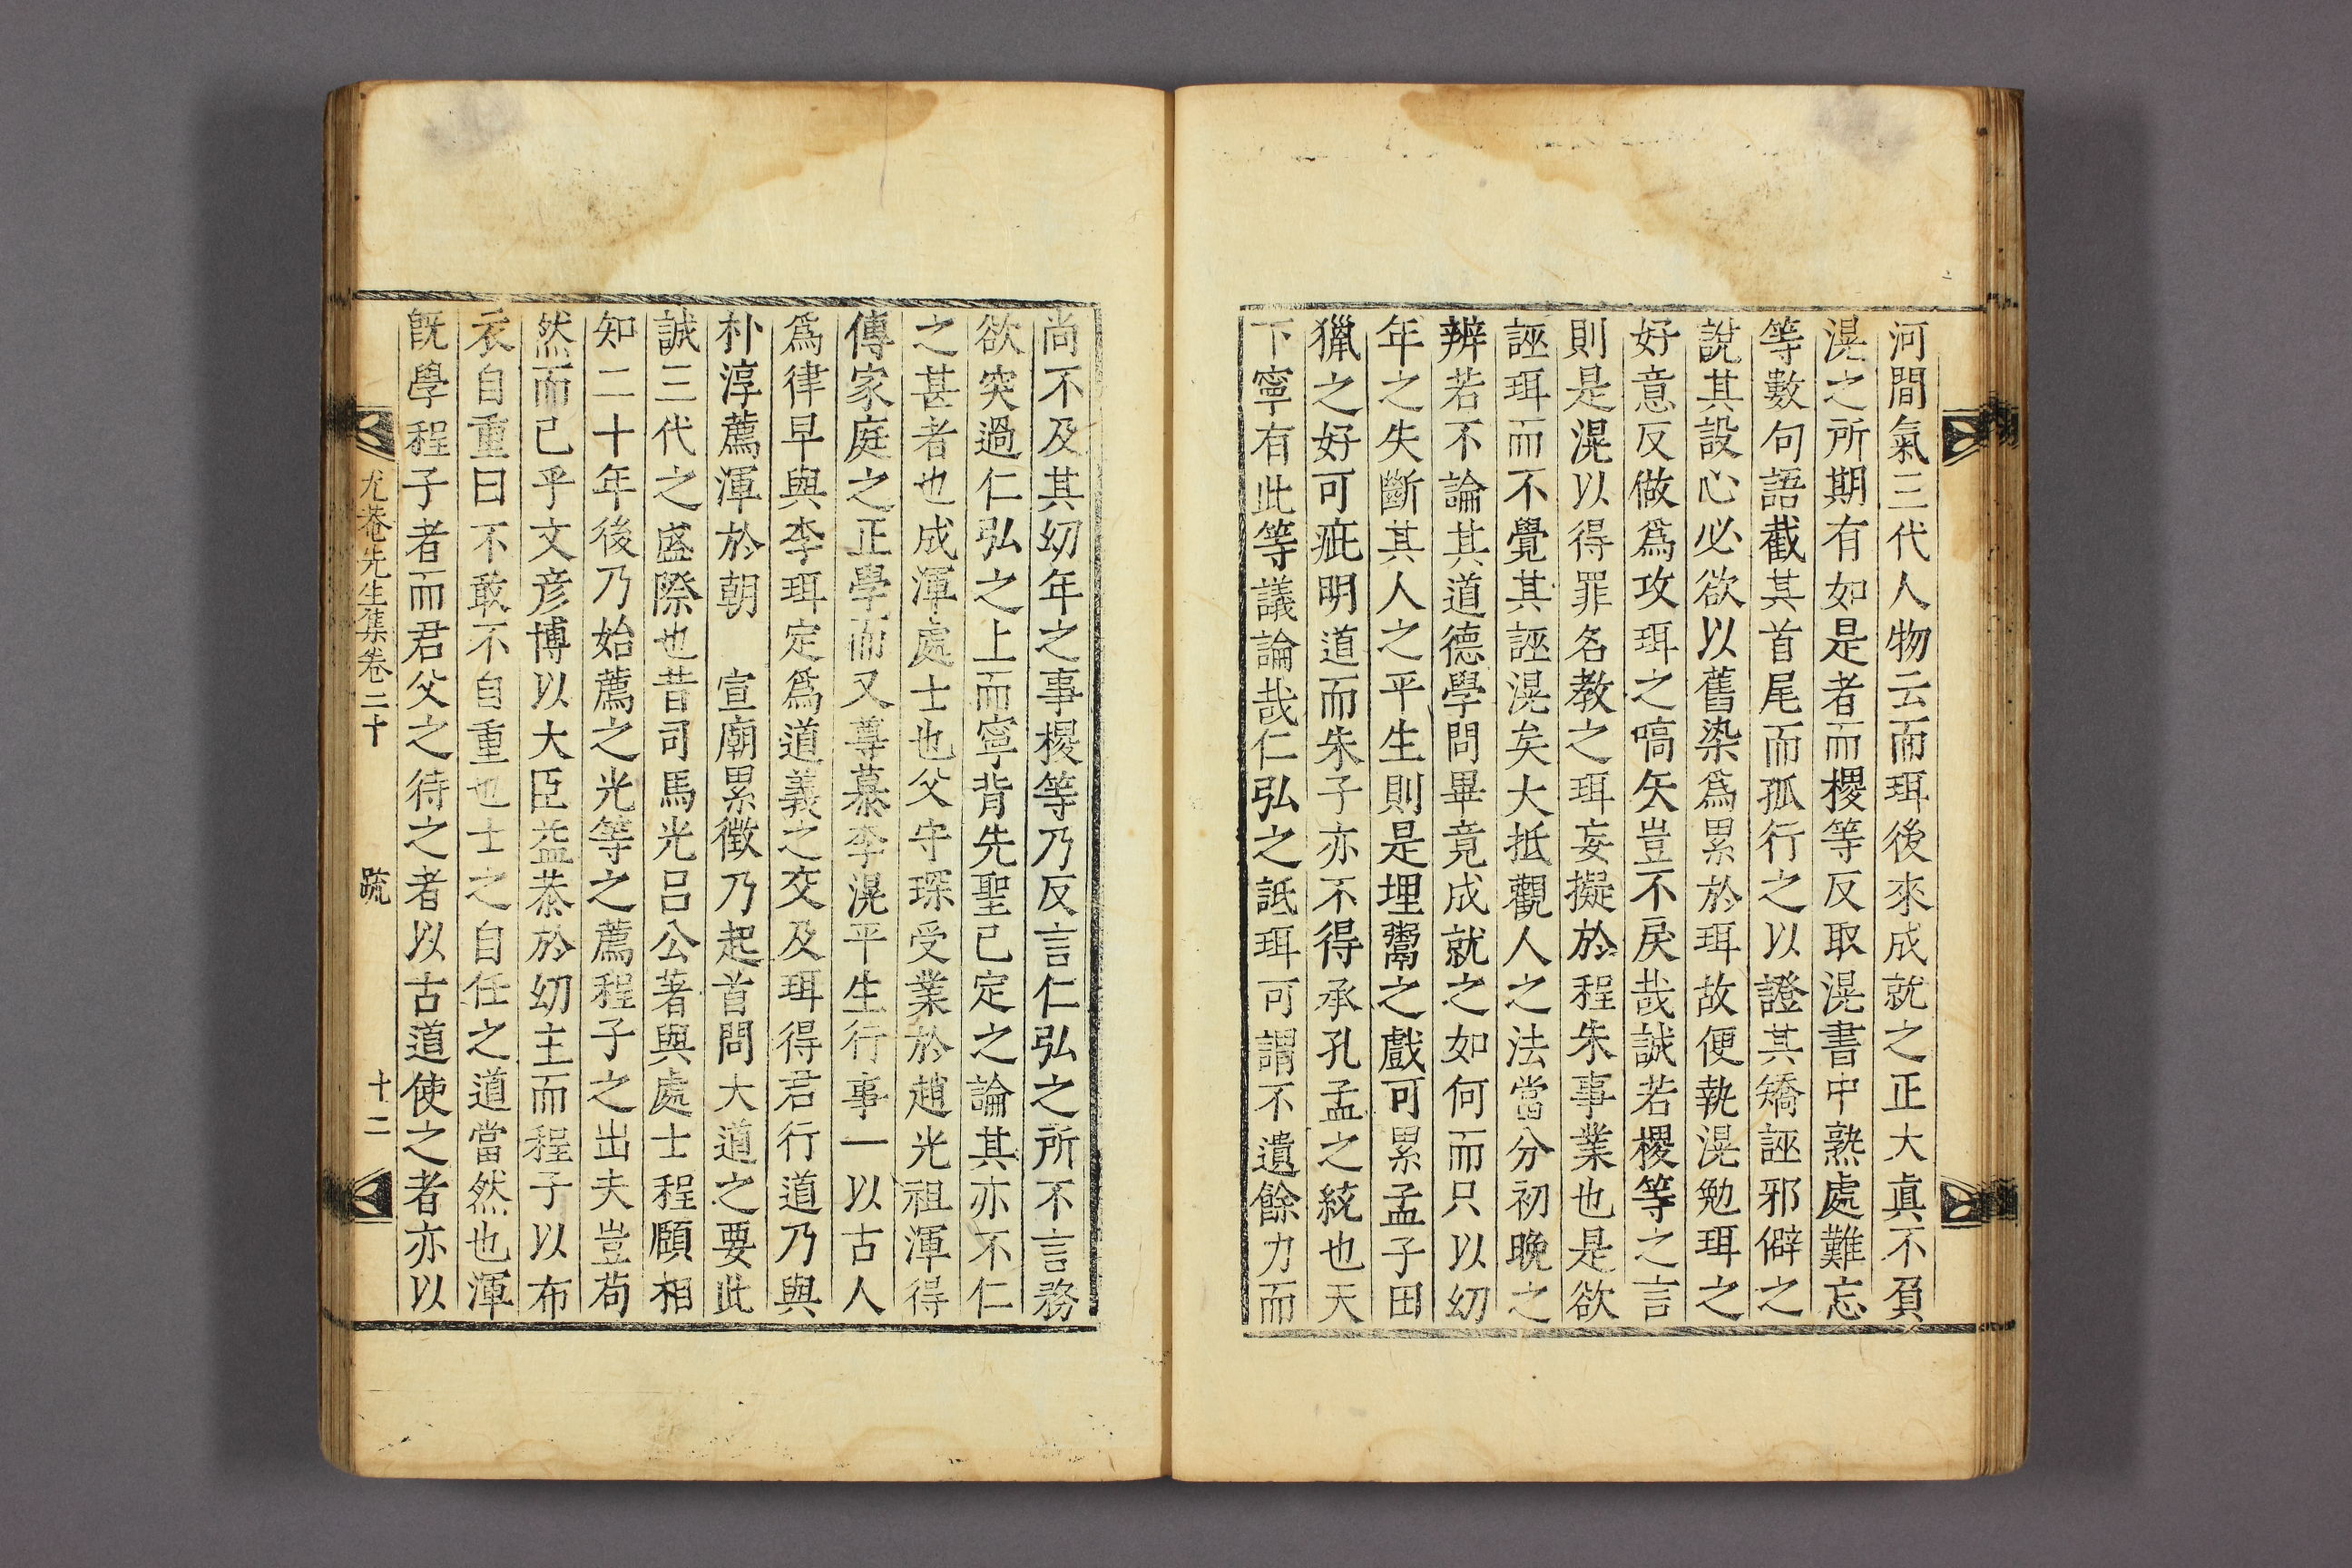 河間氣三代人物云而珥後來成就之正大眞不負
滉之所期有如是者而㮨等反取滉書中熟處難忘
等數句語截其首尾而孤行之以證其矯誣邪僻之
說其設心必欲以舊染爲累於珥故便執滉勉珥之
好意反做爲攻珥之嚆矢豈不戾哉誠若㮨等之言
則是滉以得罪名教之珥妄擬於程朱事業也是欲
誣珥而不覺其誣滉矣大抵觀人之法當分初晚之
辨若不論其道德學問畢竟成就之如何而只以幼
年之失斷其人之平生則是埋鬻之戲可累孟子田
獵之好可疵明道而朱子亦不得承孔孟之統也天
下寧有此等議論哉仁弘之詆珥可謂不遺餘力而
尚不及其幼年之事㮨等乃反言仁弘之所不言務
欲突過仁弘之上而寧背先聖已定之論其亦不仁
之甚者也成渾處士也父守琛受業於趙光祖渾得
傳家庭之正學而又尊慕李滉平生行事一以古人
爲律早與李珥定爲道義之交及珥得君行道乃與
朴淳薦渾於朝　宣廟累徵乃起首問大道之要此
誠三代之盛際也昔司馬光呂公著與處士程頤相
知二十年後乃始薦之光等之薦程子之出夫豈苟
然而已乎文彥博以大臣益恭於幼主而程子以布
衣自重曰不敢不自重也士之自任之道當然也渾
旣學程子者而君父之待之者以古道使之者亦以
尤菴先生集卷二十　疏　十二